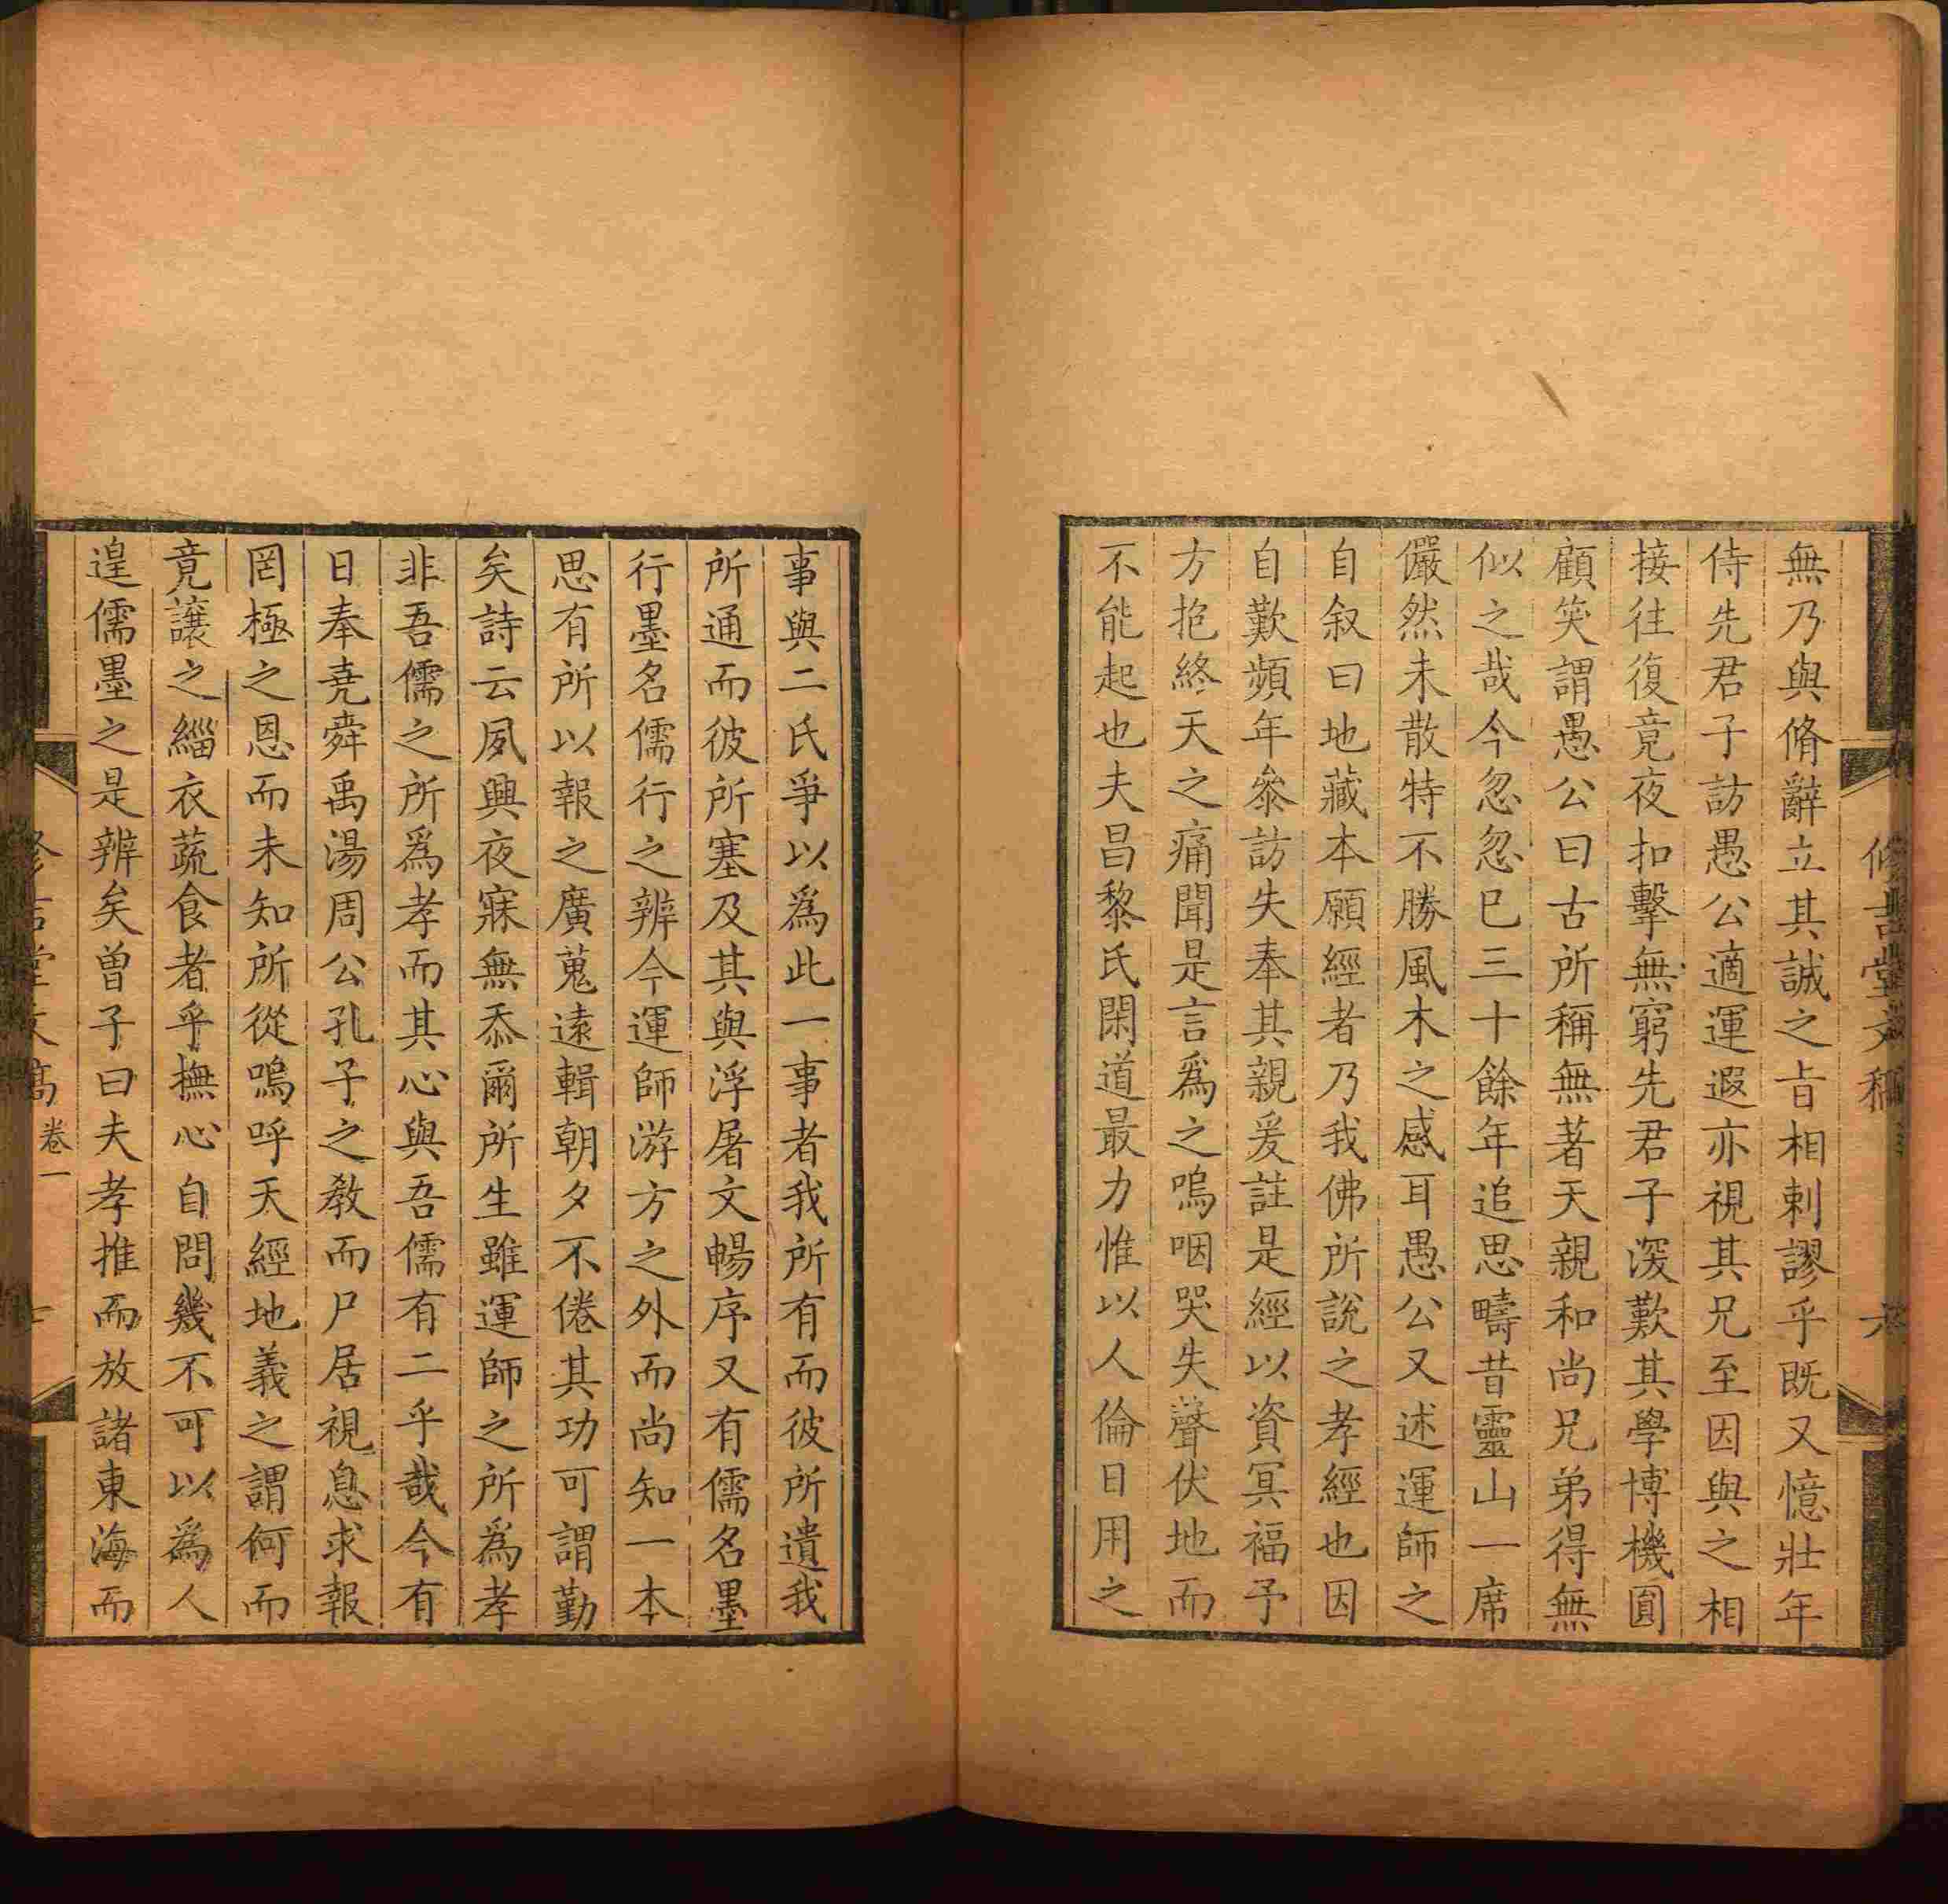 無乃與脩辭立其誠之旨相剌謬乎既又憶壯年
侍先君子訪愚公適運遐亦視其兄至因與之相
接往復竟夜扣擊無窮先君子深歎其學博機圓
顧笑謂愚公曰古所稱無著天親和尚兄弟得無
似之哉今忽忽已三十餘年追思疇昔靈山一席
儼然未散特不勝風木之感耳愚公又述運師之
自叙曰地藏本願經者乃我佛所說之孝經也因
自歎頻年叅訪失奉其親爰註是經以資冥福予
方抱終天之痛聞是言爲之嗚咽哭失聲伏地而
不能起也夫昌黎氏閑道最力惟以人倫日用之
事與二氏爭以爲此一事者我所有而彼所遺我
所通而彼所塞及其與浮屠文暢序又有儒名墨
行墨名儒行之辨今運師游方之外而尚知一本
思有所以報之廣蒐遠輯朝夕不倦其功可謂勤
矣詩云夙興夜寐無忝爾所生雖運師之所爲孝
非吾儒之所爲孝而其心與吾儒有二乎哉今有
日奉堯舜禹湯周公孔子之教而尸居視息求報
罔極之恩而未知所從嗚呼天經地義之謂何而
竟讓之緇衣蔬食者乎撫心自問幾不可以爲人
遑儒墨之是辨矣曾子曰夫孝推而放諸東海而
卷一